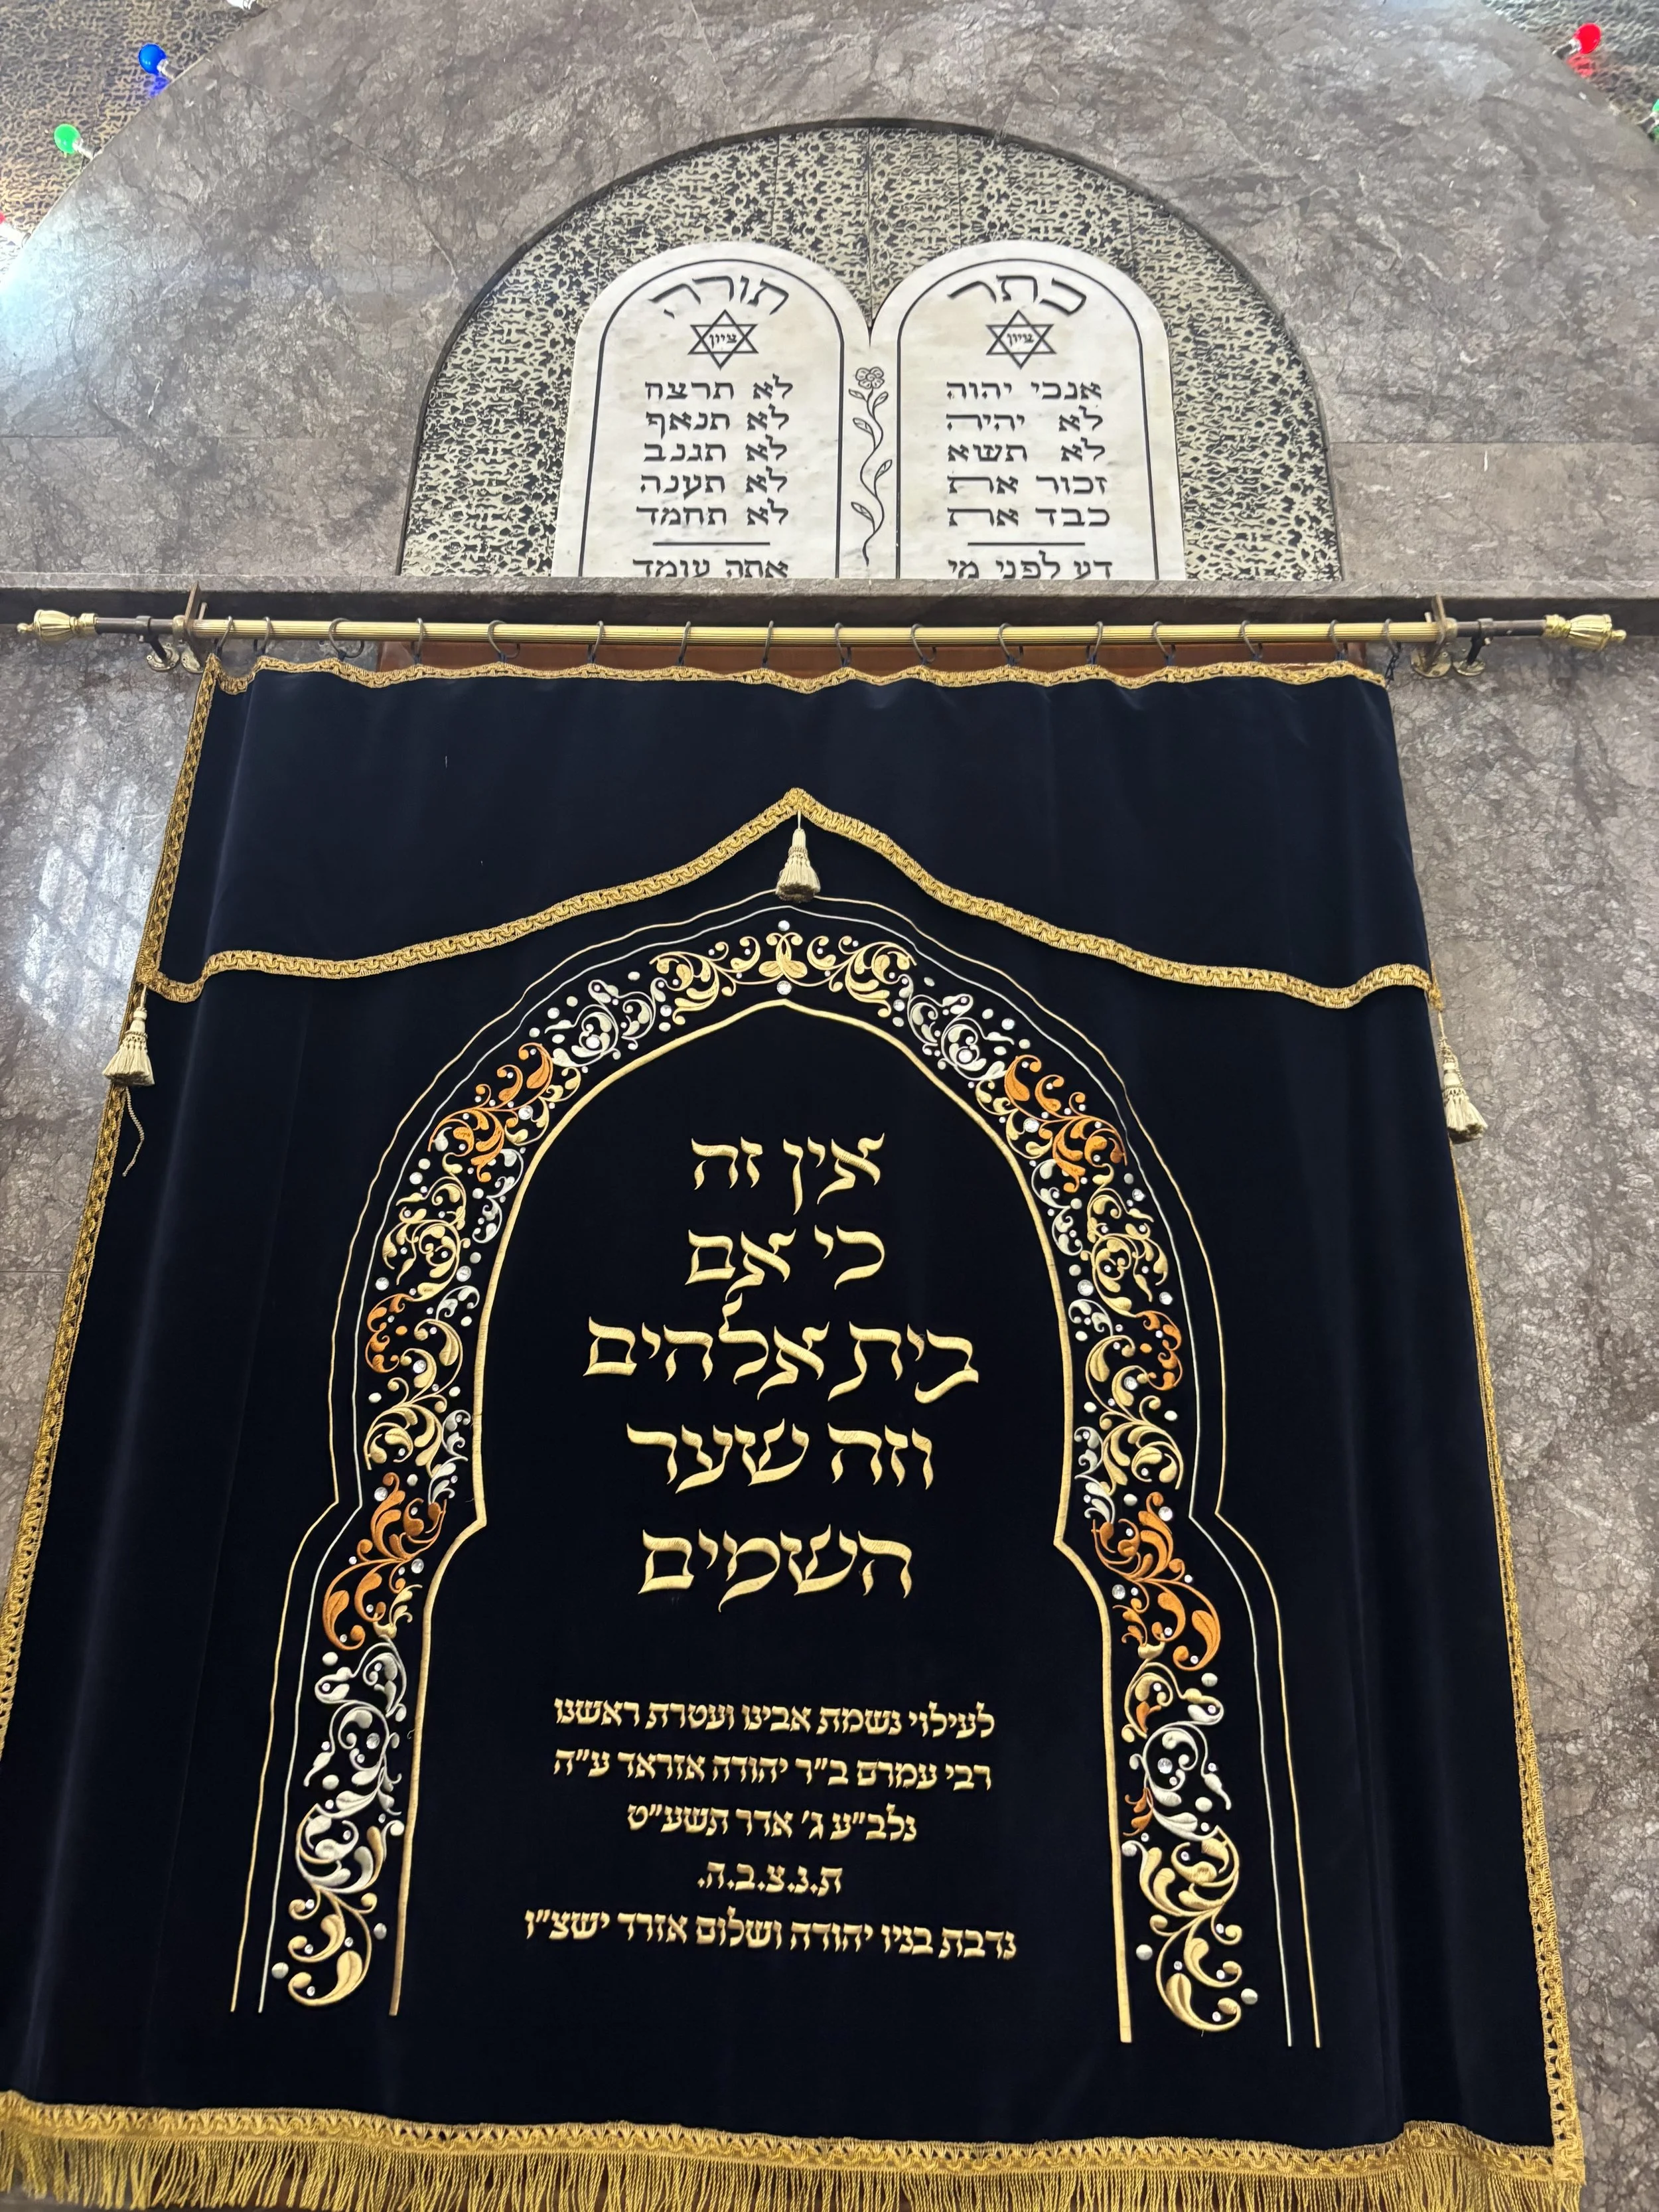 כתר
ציון
אנכי יהוה
לא יהיה
לא תשא
זכור את
כבד את
דע לפני מי
תורה
ציון
לא תרצח
לא תנאף
לא תגנב
לא תענה
לא תחמד
אתה עומד
אין זה
כי אם
בית אלהים
וזה שער
השמים
לעילוי נשמת אבינו ועטרת ראשנו
רבי עמרם ב"ר יהודה אזראד ע"ה
נלב"ע ג' אדר תשע"ט
ת.נ.צ.ב.ה.
נדבת בניו יהודה ושלום אזרד ישצ"ו